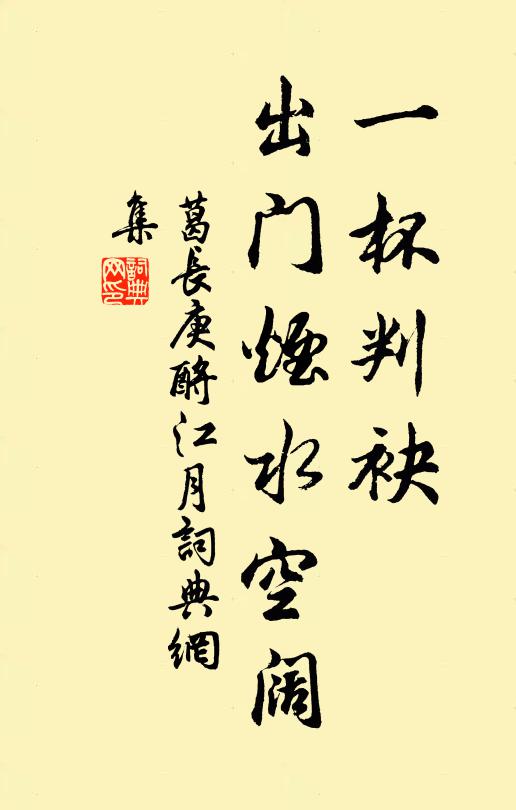 一杯判袂
出门烟水空阔
葛長庚酹江月詞典網
集
詞典
网印